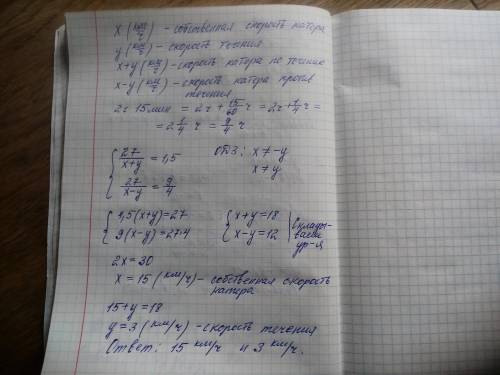 x (км/ч) - собственная скорость катера
y (км/ч) - скорость течения
x+y (км/ч) - скорость катера по течению
x-y (км/ч) - скорость катера против
течения
2ч 15мин = 2ч + 15/60 ч = 2ч + 1/4 ч =
= 2 1/4 ч = 9/4 ч
{ 27/(x+y) = 1,5 ОДЗ: x ≠ -y
{ 27/(x-y) = 9/4 x ≠ y
{ 1,5(x+y)=27 { x+y=18 | Склады-
{ 9(x-y)=27·4 { x-y=12 | ваем
ур-я
2x=30
x = 15 (км/ч) - собственная скорость
катера
15+y=18
y=3 (км/ч) - скорость течения
Ответ: 15 км/ч и 3 км/ч.